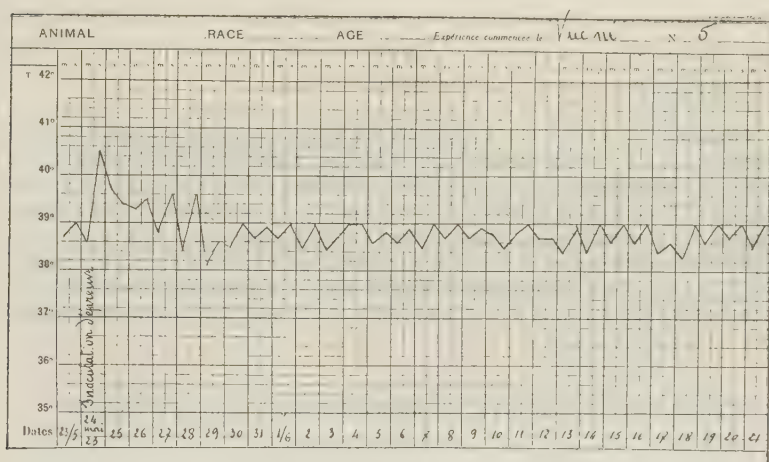 ANIMAL RACE AGE Expérience commencée le N 5
T 42°
41°
40°
39°
38°
37°
36°
35°
Inoculation d'épreuve
Dates 23/5 24 mai 23 25 26 27 28 29 30 31 1/6 2 3 4 5 6 7 8 9 10 11 12 13 14 15 16 17 18 19 20 21